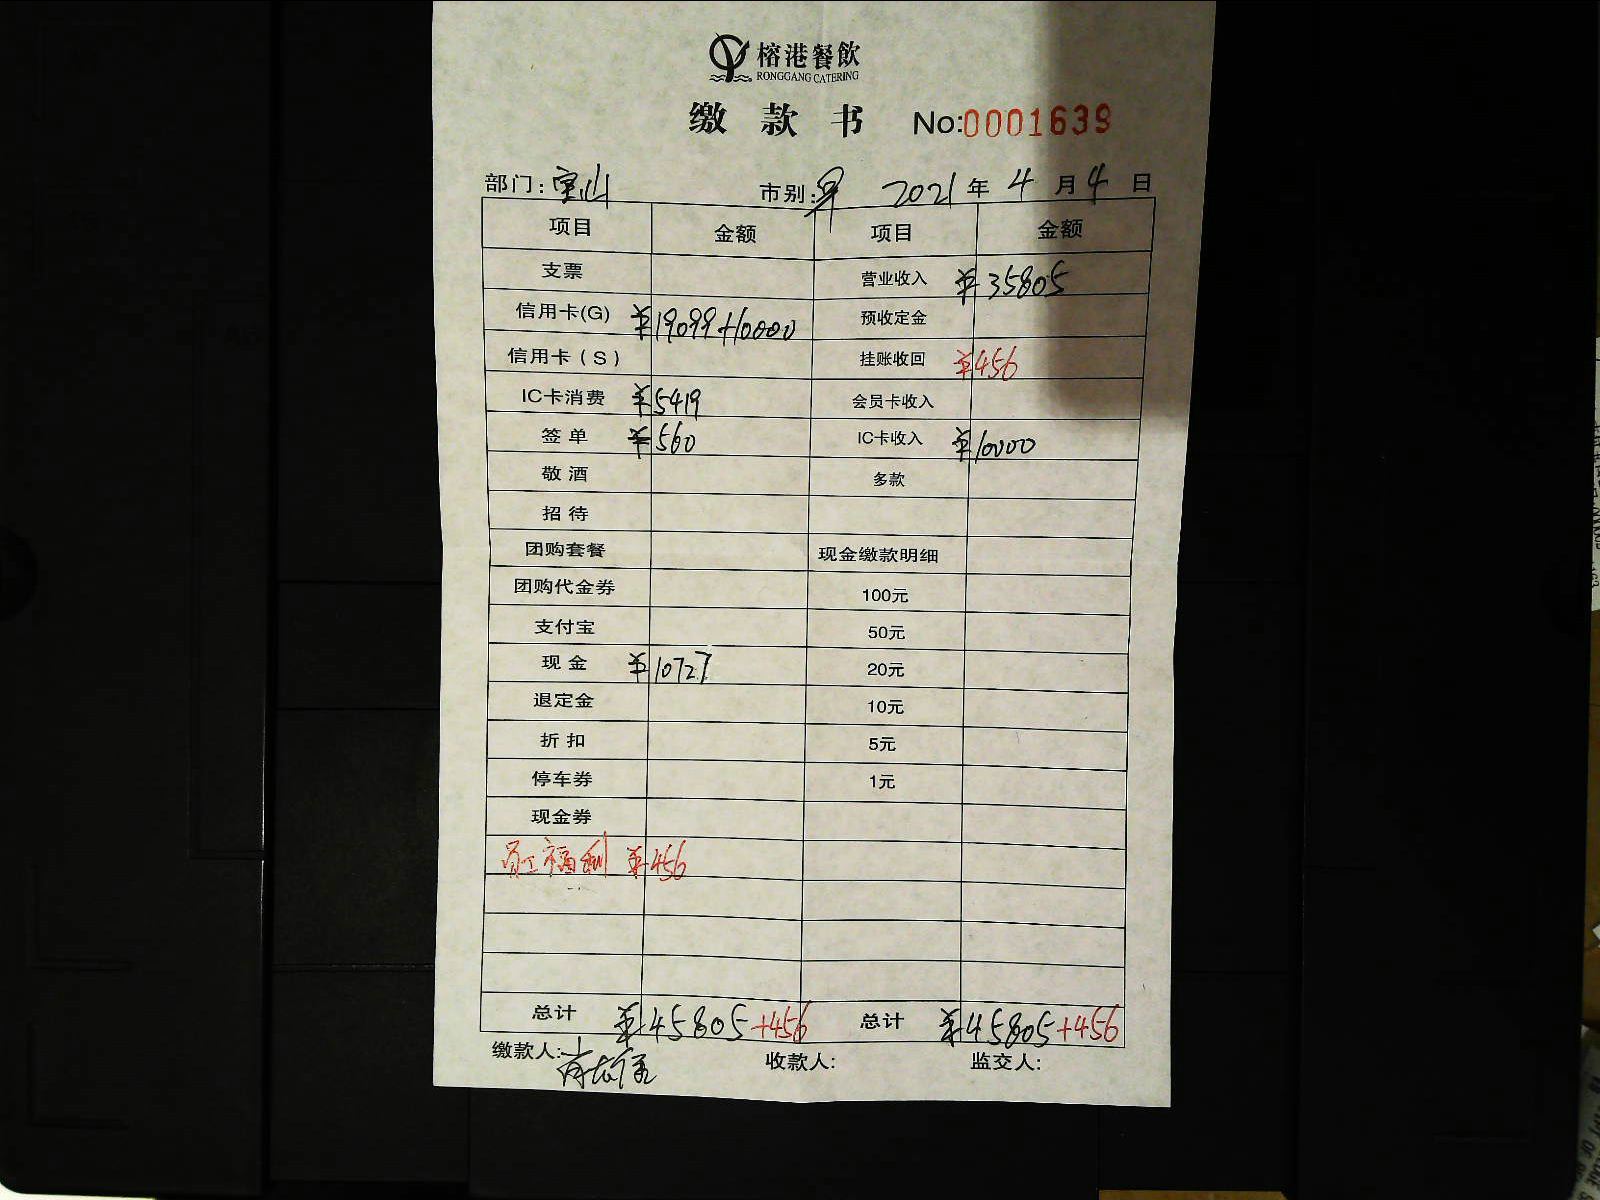 榕港餐飲
RONGGANG CATERING
缴款书 No:0001639
部门:宝山 市别:早 2021年4月4日
项目 金额 项目 金额
支票 营业收入 ¥35805
信用卡(G) ¥19099+10000 预收定金
信用卡(S) 挂账收回 ¥456
IC卡消费 ¥5419 会员卡收入
签单 ¥560 IC卡收入 ¥10000
敬酒 多款
招待
团购套餐 现金缴款明细
团购代金券 100元
支付宝 50元
现金 ¥10727 20元
退定金 10元
折扣 5元
停车券 1元
现金券
员工福利 ¥456
总计 ¥45805+456 总计 ¥45805+456
缴款人: 收款人: 监交人: